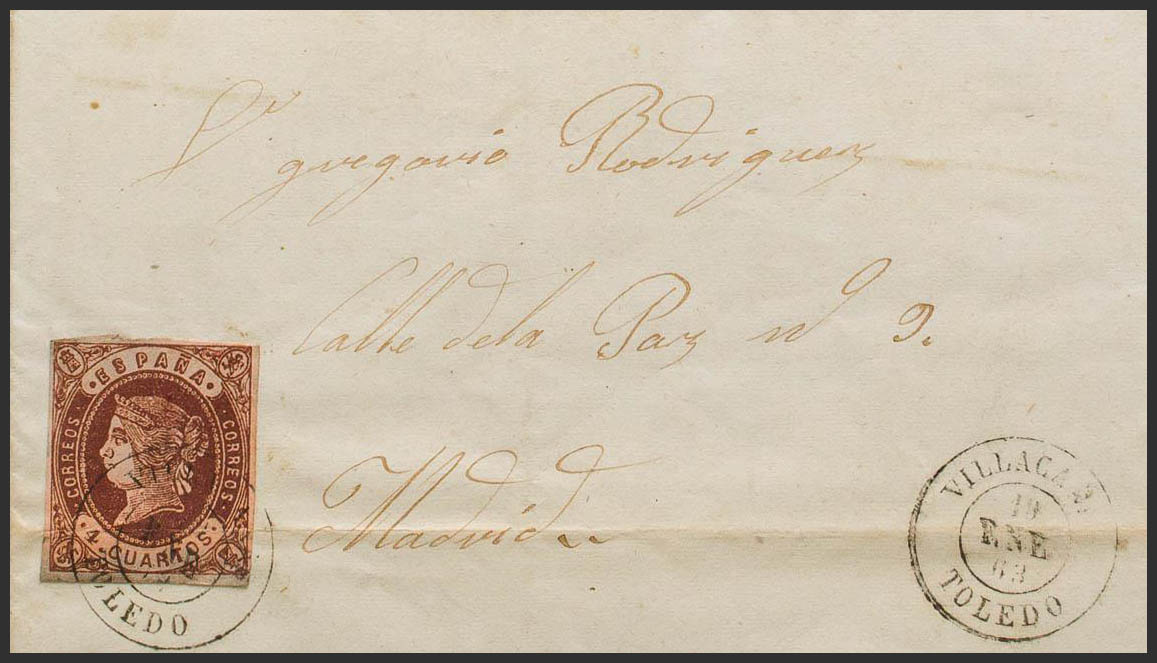 Sr gregorio Rodriguez
Calle dela Paz nº 9.
Madrid
ESPAÑA
CORREOS
CORREOS
4 CUARTOS
TOLEDO
VILLACAÑ
19
ENE
63
TOLEDO